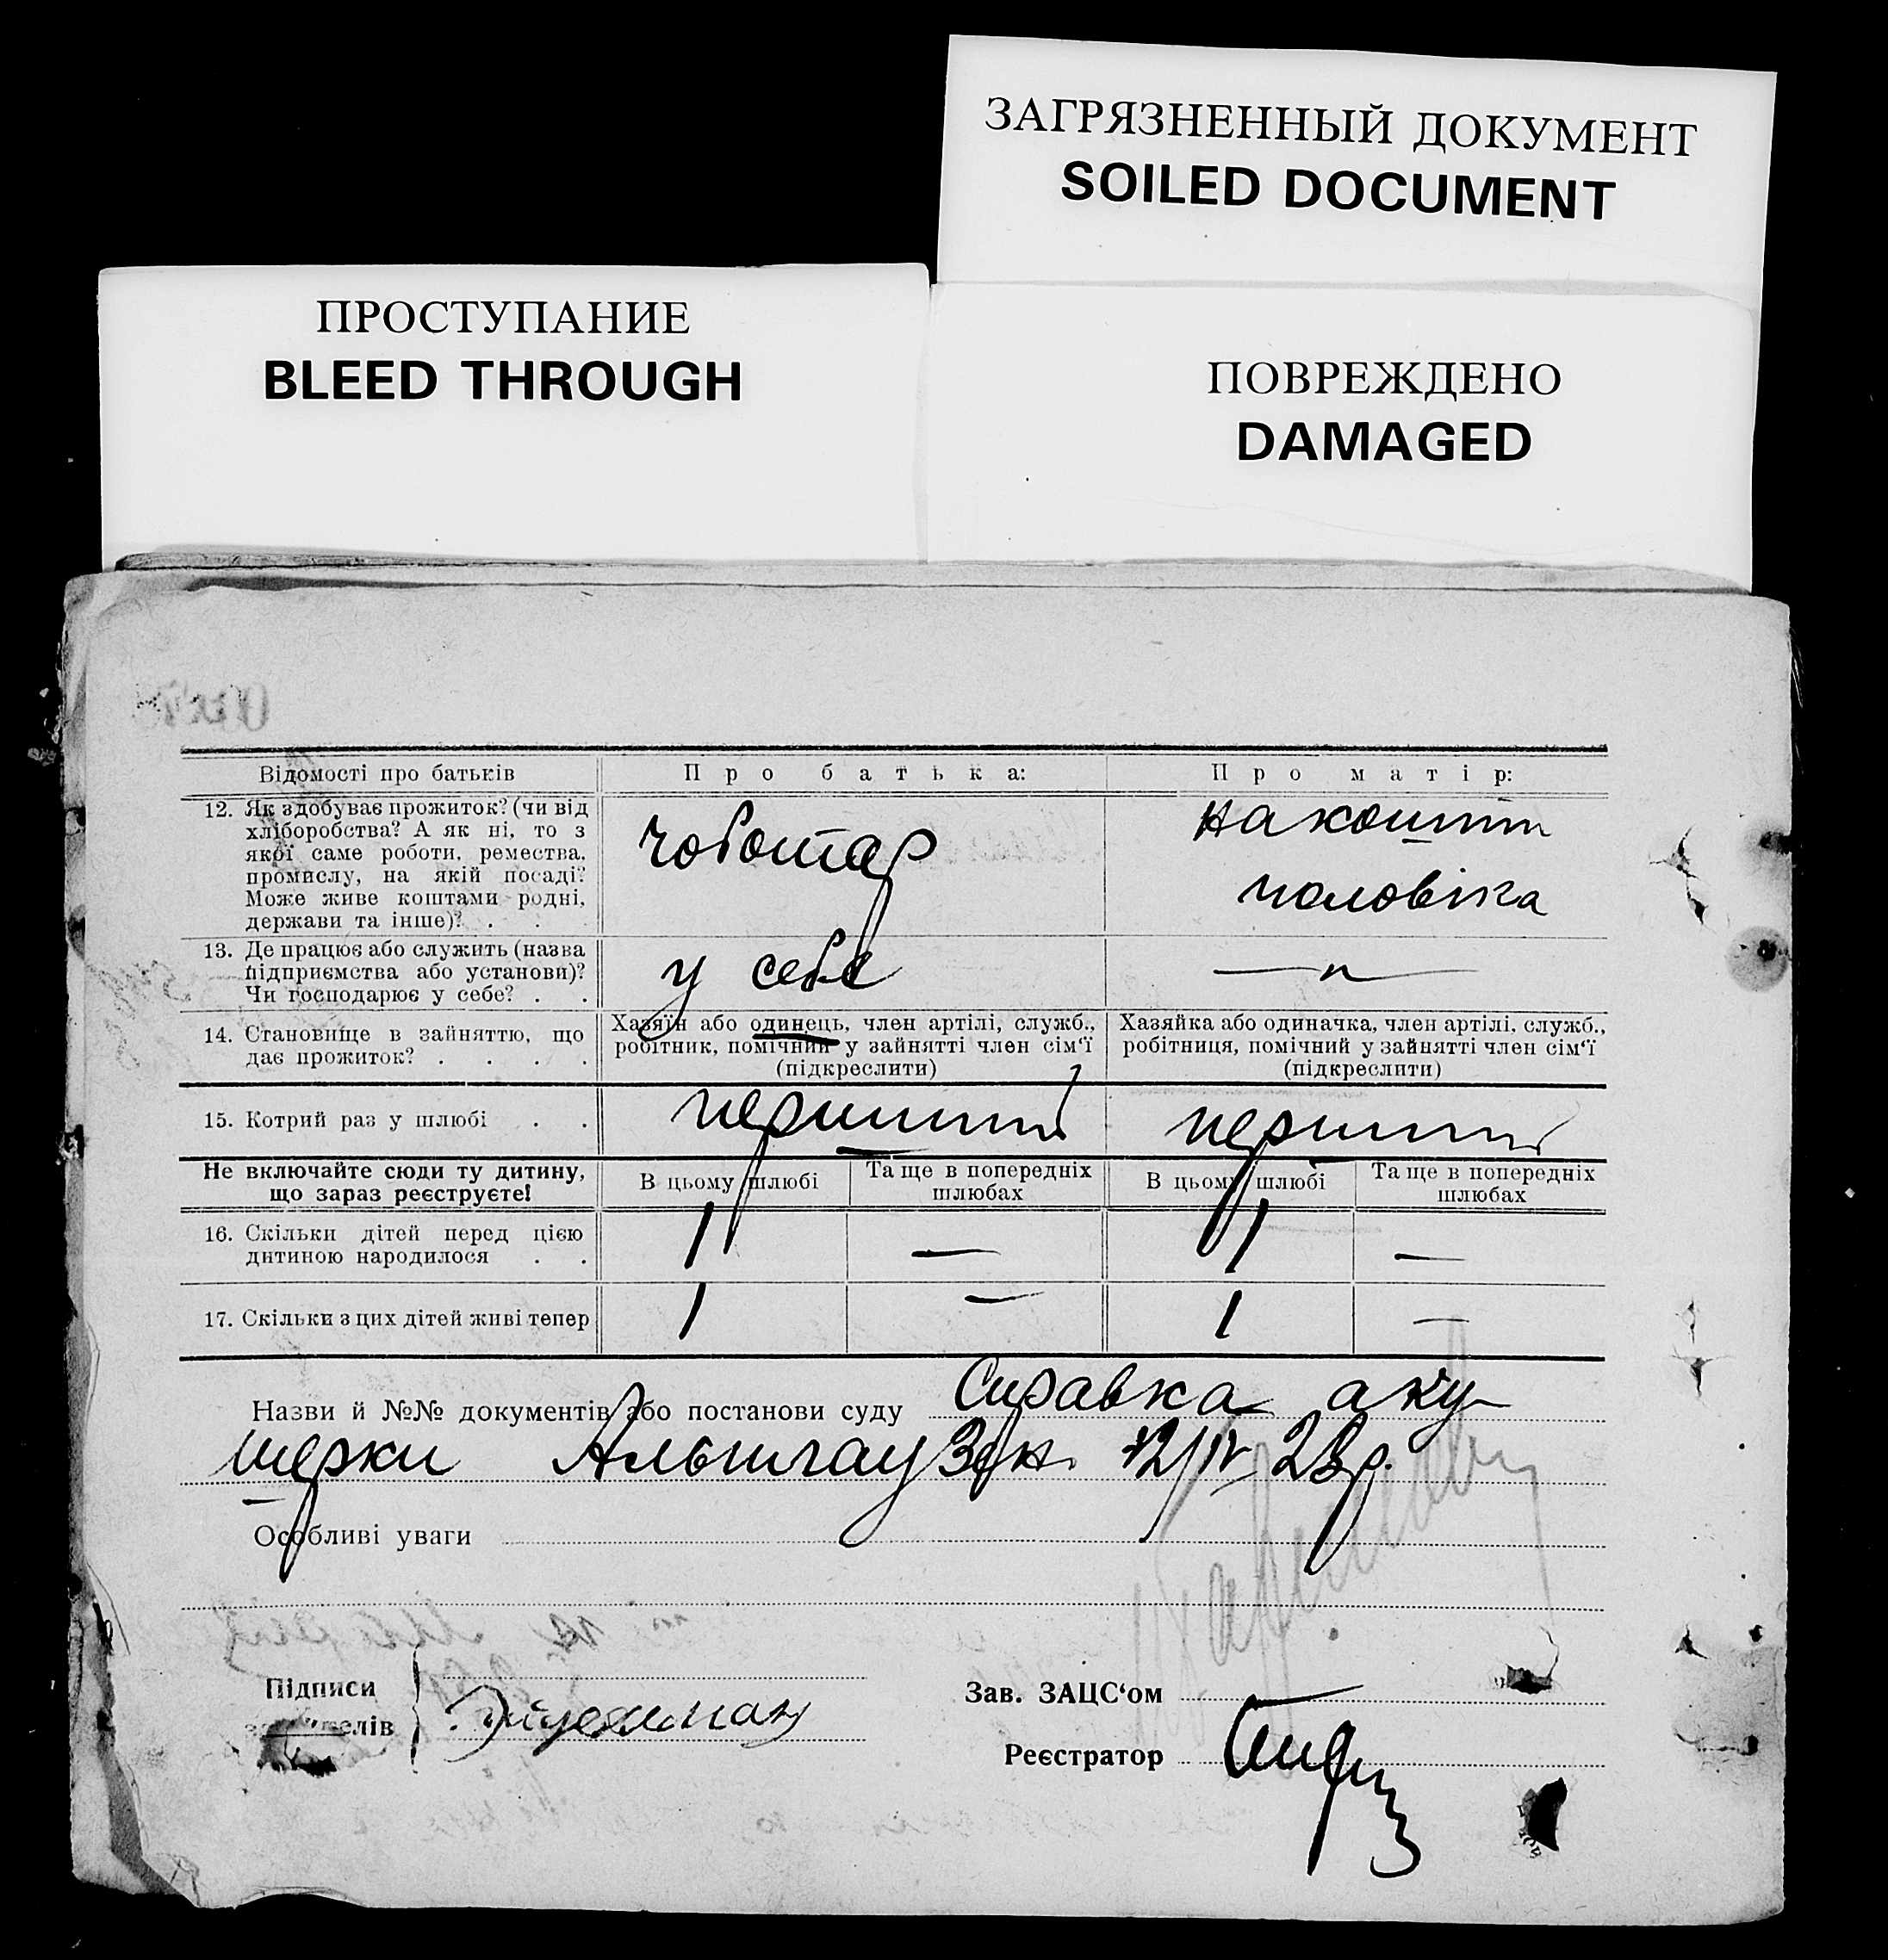 ЗАГРЯЗНЕННЫЙ ДОКУМЕНТ
SOILED DOCUMENT
ПРОСТУПАНИЕ
BLEED THROUGH
ПОВРЕЖДЕНО
DAMAGED
Відомості про батьків
Про батька:
Про матір:
12. Як здобуває прожиток? (чи від
хліборобства? А як ні, то з
якої саме роботи, ремества,
промислу, на якій посаді?
Може живе коштами родні,
держави та інше)? . .
чоботар
на кошти
чоловіка
13. Де працює або служить (назва
підприємства або установи)?
Чи господарює у себе? . .
у себе
— „ —
14. Становище в зайняттю, що
дає прожиток? . . . .
Хазяїн або одинець, член артілі, служб.,
робітник, помічний у зайнятті член сім'ї
(підкреслити)
Хазяйка або одиначка, член артілі, служб.,
робітниця, помічний у зайнятті член сім'ї
(підкреслити)
15. Котрий раз у шлюбі . .
перший
перший
Не включайте сюди ту дитину,
що зараз реєструєте!
В цьому шлюбі
Та ще в попередніх
шлюбах
В цьому шлюбі
Та ще в попередніх
шлюбах
16. Скільки дітей перед цією
дитиною народилося . .
1 — 1 —
17. Скільки з цих дітей живі тепер
1 — 1 —
Назви й №№ документів або постанови суду Справка аку-
шерки
Особливі уваги
Підписи
Зав. ЗАЦС'ом
Реєстратор